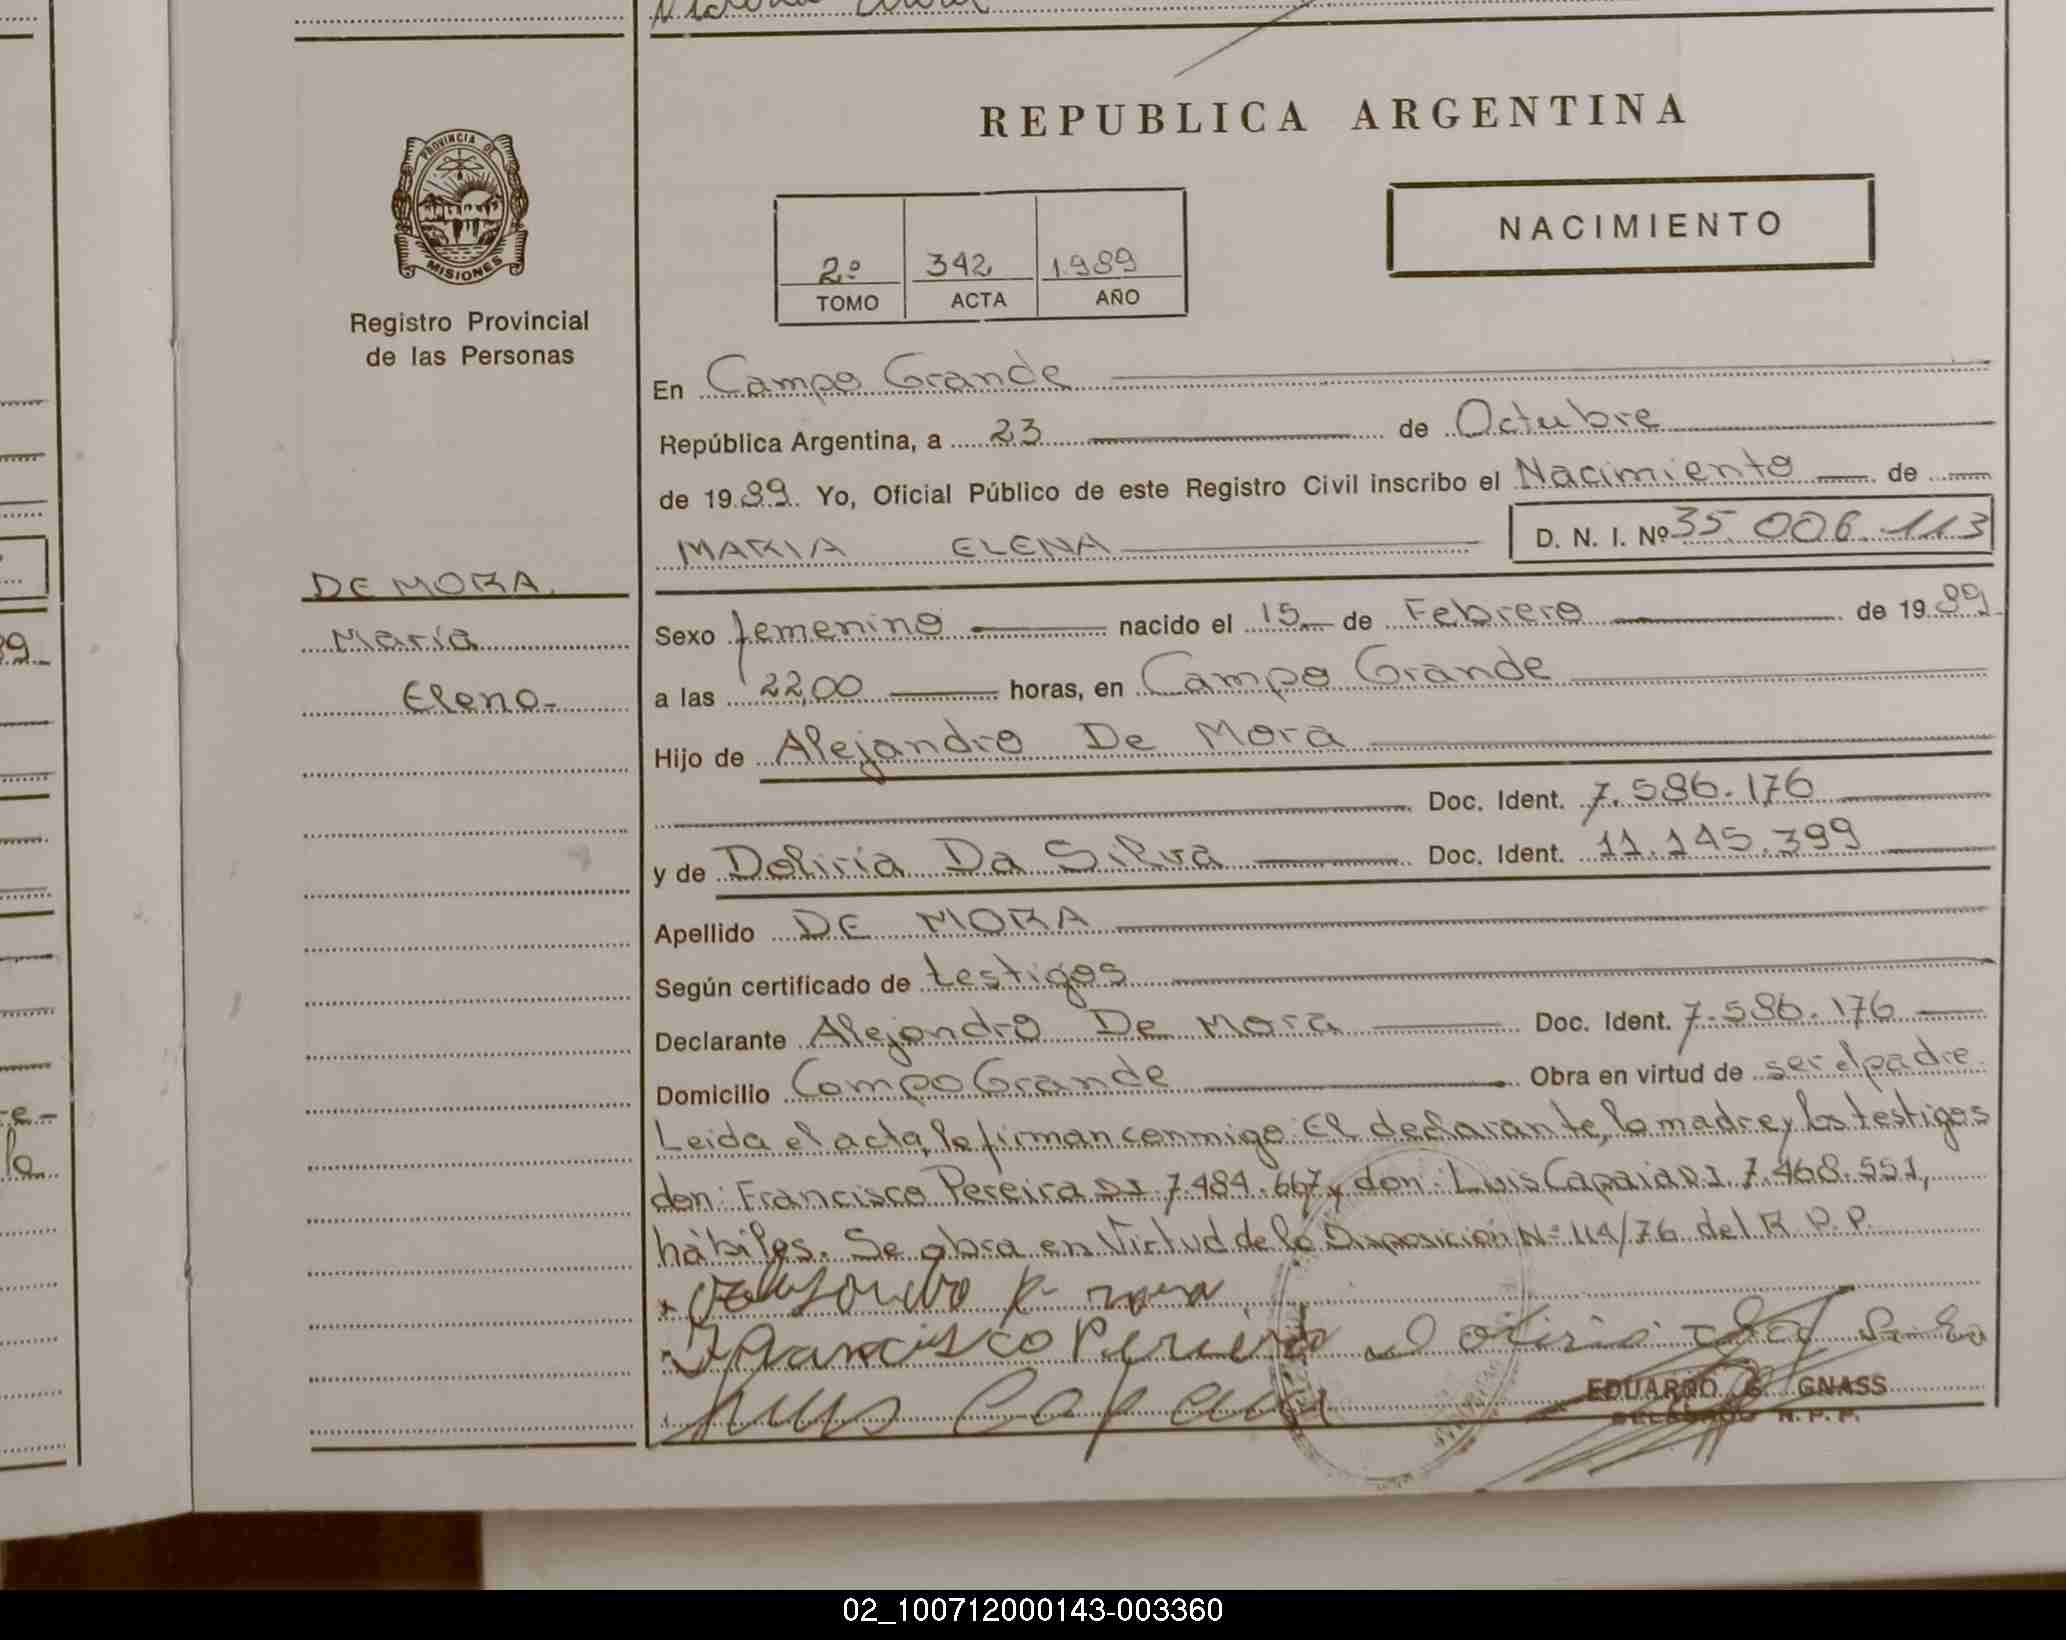 REPUBLICA ARGENTINA
PROVINCIA DE
MISIONES
Registro Provincial
de las Personas
2º 342 1989
TOMO ACTA AÑO
NACIMIENTO
En Campo Grande
República Argentina, a 23 de Octubre
de 1989. Yo, Oficial Público de este Registro Civil inscribo el Nacimiento de
MARIA ELENA D. N. I. Nº 35.006.113
DE MORA.
María
Elena
Sexo femenino nacido el 15 de Febrero de 1989
a las 22,00 horas, en Campo Grande
Hijo de Alejandro De Mora
Doc. Ident. 7.586.176
y de Doliria Da Silva Doc. Ident. 11.145.399
Apellido DE MORA
Según certificado de testigos
Declarante Alejandro De Mora Doc. Ident. 7.586.176
Domicilio Campo Grande Obra en virtud de ser el padre.
Leida el acta, la firman conmigo: El declarante, la madre y los testigos
don: Francisco Pereira DI 7.484.667 y don: Luis Capaia DI. 7.468.551,
hábiles. Se obra en Virtud de la Disposición Nº 114/76 del R.P.P.
Francisco Pereira
Luis
EDUARDO G. GNASS
DELEGADO R. P. P.
02_100712000143-003360